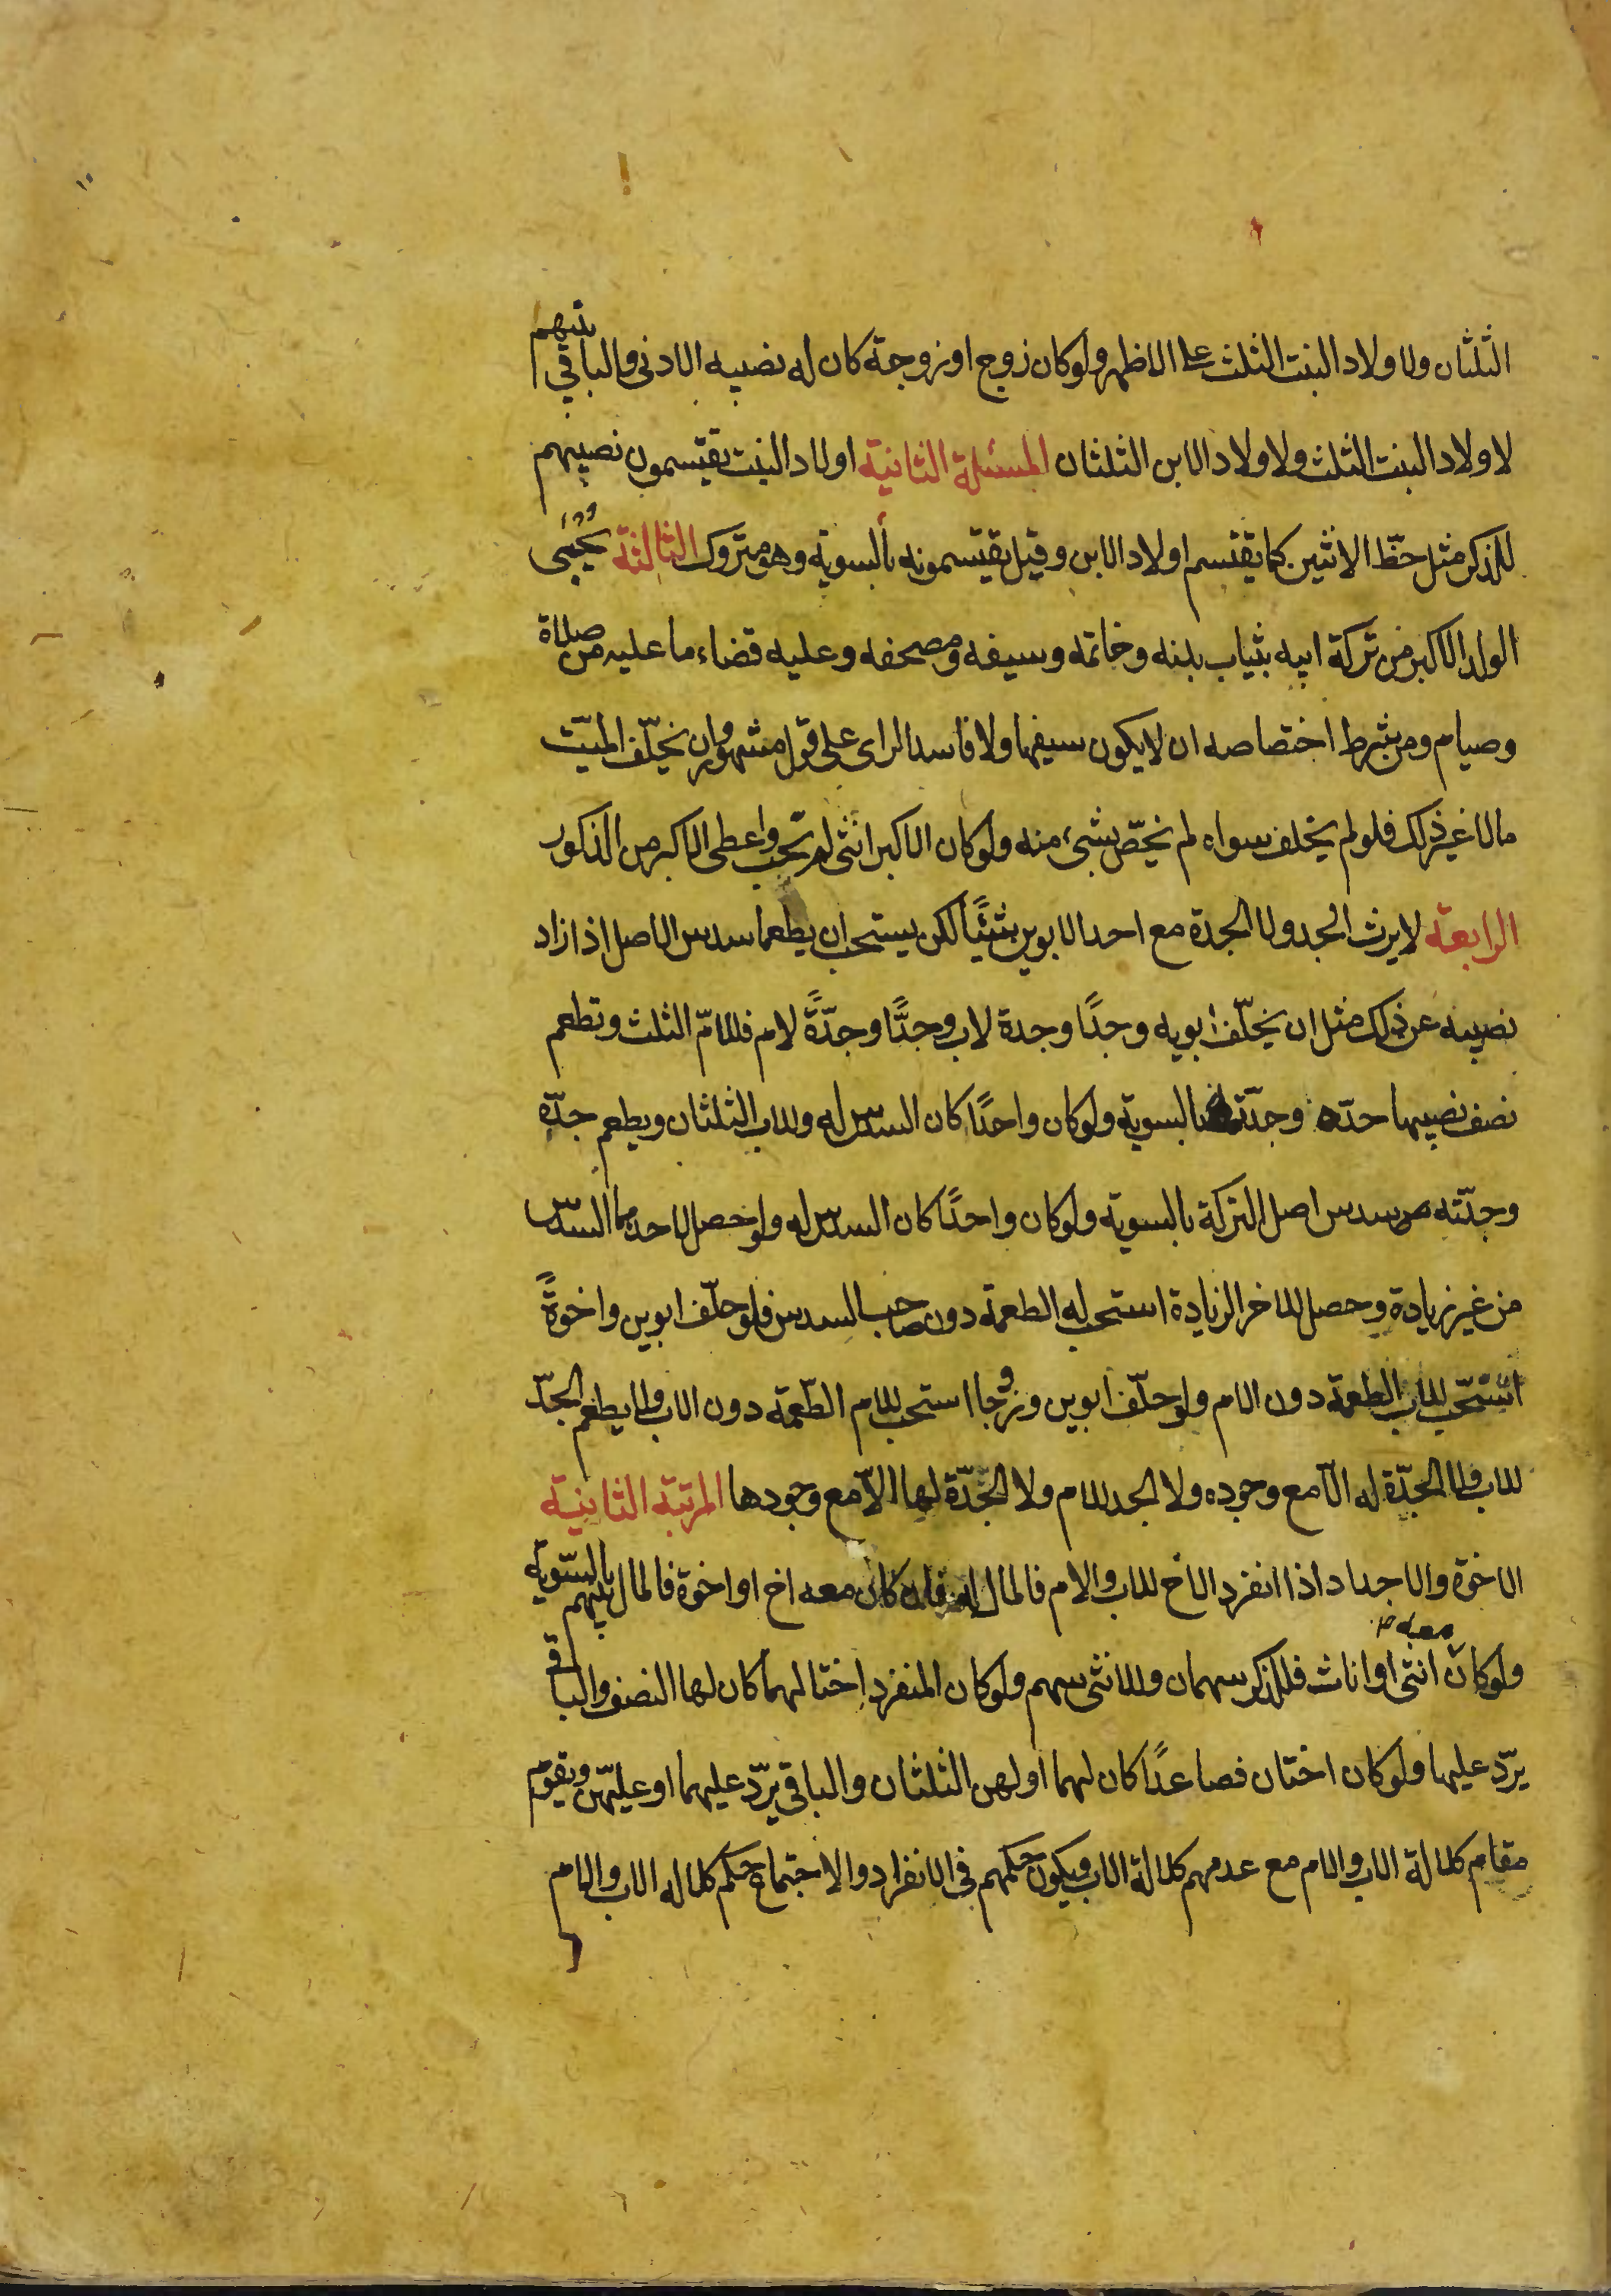 الثلثان ولاولاد البنت الثلث على الاظهر ولو كان زوج او زوجة كان له نصيبه الادنى والباقي بينهم
لاولاد البنت الثلث ولاولاد الابن الثلثان المسئلة الثانية اولاد البنت يقتسمون نصيبهم
للذكر مثل حظّ الانثيين كما يقتسم اولاد الابن وقيل يقتسمونه بالسوية وهو متروك الثالثة يحبى
الولد الاكبر من تركة ابيه بثياب بدنه وخاتمه وسيفه ومصحفه وعليه قضاء ما عليه من صلاة
وصيام ومن شرط اختصاصه ان لا يكون سفيها ولا فاسد الراى على قول مشهور وان يخلّف الميّت
مالا غير ذلك فلو لم يخلف سواه لم يخصّ بشىء منه ولو كان الاكبر انثى لم تحب واعطى الاكبر من الذكور
الرابعة لا يرث الجد ولا الجدة مع احد الابوين شيئًا لكن يستحب ان يطعما سدس الاصل اذا زاد
نصيبه عن ذلك مثل ان يخلّف ابويه وجدًا وجدة لاب وجدًّا وجدّةً لام فللامّ الثلث وتطعم
نصف نصيبها جدّه وجدّته بالسوية ولو كان واحدًا كان السدس له وللاب الثلثان ويطعم جدّه
وجدّته من سدس اصل التركة بالسوية ولو كان واحدًا كان السدس له ولو حصل لاحدهما السدس
من غير زيادة وحصل للاخر الزيادة استحب له الطعمة دون صاحب السدس فلو خلّف ابوين واخوةً
استحّب للاب الطعمة دون الام ولو خلّف ابوين وزوجا استحب للام الطّعمة دون الاب ولا يطعم الجدّ
للاب ولا الجدّة له الّا مع وجوده ولا الجد للام ولا الجّدّة لها الّا مع وجودها المرتبة الثانية
الاخوة والاجداد اذا انفرد الاخ للاب والام فالمال له فان كان معه اخ او اخوة فالمال بينهم بالسّويّة
ولو كان معه انثى او اناث فللذكر سهمان وللانثى سهم ولو كان المنفرد اختا لهما كان لها النصف والباقي
يردّ عليها ولو كان اختان فصاعدًا كان لهما او لهن الثلثان والباقي يردّ عليهما او عليهنّ ويقوم
مقام كلالة الاب والام مع عدمهم كلالة الاب ويكون حكمهم في الانفراد والاجتماع حكم كلالة الاب والام